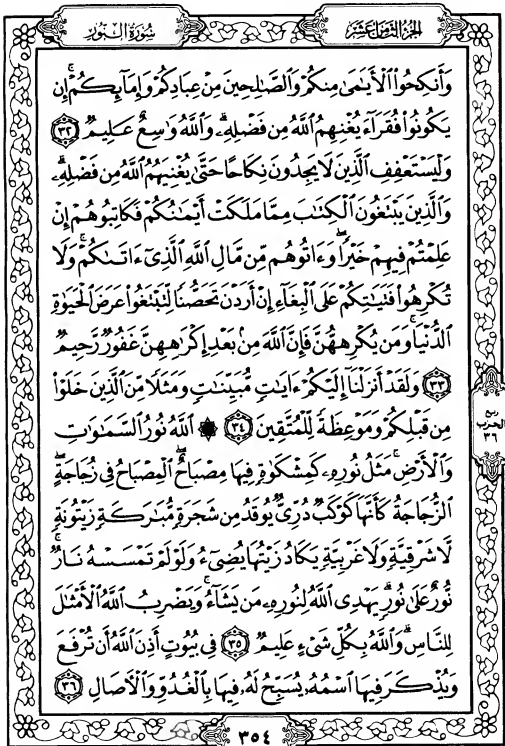 الجزء الثامن عشر
سورة النور
وَأَنكِحُوا۟ ٱلْأَيَـٰمَىٰ مِنكُمْ وَٱلصَّـٰلِحِينَ مِنْ عِبَادِكُمْ وَإِمَآئِكُمْ ۚ إِن
يَكُونُوا۟ فُقَرَآءَ يُغْنِهِمُ ٱللَّهُ مِن فَضْلِهِۦ ۗ وَٱللَّهُ وَٰسِعٌ عَلِيمٌ ٣٢
وَلْيَسْتَعْفِفِ ٱلَّذِينَ لَا يَجِدُونَ نِكَاحًا حَتَّىٰ يُغْنِيَهُمُ ٱللَّهُ مِن فَضْلِهِۦ ۗ
وَٱلَّذِينَ يَبْتَغُونَ ٱلْكِتَـٰبَ مِمَّا مَلَكَتْ أَيْمَـٰنُكُمْ فَكَاتِبُوهُمْ إِنْ
عَلِمْتُمْ فِيهِمْ خَيْرًا ۖ وَءَاتُوهُم مِّن مَّالِ ٱللَّهِ ٱلَّذِىٓ ءَاتَىٰكُمْ ۚ وَلَا
تُكْرِهُوا۟ فَتَيَـٰتِكُمْ عَلَى ٱلْبِغَآءِ إِنْ أَرَدْنَ تَحَصُّنًا لِّتَبْتَغُوا۟ عَرَضَ ٱلْحَيَوٰةِ
ٱلدُّنْيَا ۚ وَمَن يُكْرِههُّنَّ فَإِنَّ ٱللَّهَ مِنۢ بَعْدِ إِكْرَٰهِهِنَّ غَفُورٌ رَّحِيمٌ
٣٣ وَلَقَدْ أَنزَلْنَآ إِلَيْكُمْ ءَايَـٰتٍ مُّبَيِّنَـٰتٍ وَمَثَلًا مِّنَ ٱلَّذِينَ خَلَوْا۟
مِن قَبْلِكُمْ وَمَوْعِظَةً لِّلْمُتَّقِينَ ٣٤ ۞ ٱللَّهُ نُورُ ٱلسَّمَـٰوَٰتِ
وَٱلْأَرْضِ ۚ مَثَلُ نُورِهِۦ كَمِشْكَوٰةٍ فِيهَا مِصْبَاحٌ ۖ ٱلْمِصْبَاحُ فِى زُجَاجَةٍ ۖ
ٱلزُّجَاجَةُ كَأَنَّهَا كَوْكَبٌ دُرِّىٌّ يُوقَدُ مِن شَجَرَةٍ مُّبَـٰرَكَةٍ زَيْتُونَةٍ
لَّا شَرْقِيَّةٍ وَلَا غَرْبِيَّةٍ يَكَادُ زَيْتُهَا يُضِىٓءُ وَلَوْ لَمْ تَمْسَسْهُ نَارٌ ۚ
نُّورٌ عَلَىٰ نُورٍ ۗ يَهْدِى ٱللَّهُ لِنُورِهِۦ مَن يَشَآءُ ۚ وَيَضْرِبُ ٱللَّهُ ٱلْأَمْثَـٰلَ
لِلنَّاسِ ۗ وَٱللَّهُ بِكُلِّ شَىْءٍ عَلِيمٌ ٣٥ فِى بُيُوتٍ أَذِنَ ٱللَّهُ أَن تُرْفَعَ
وَيُذْكَرَ فِيهَا ٱسْمُهُۥ يُسَبِّحُ لَهُۥ فِيهَا بِٱلْغُدُوِّ وَٱلْـَٔاصَالِ ٣٦
ربع
الحزب
٣٦
٣٥٤